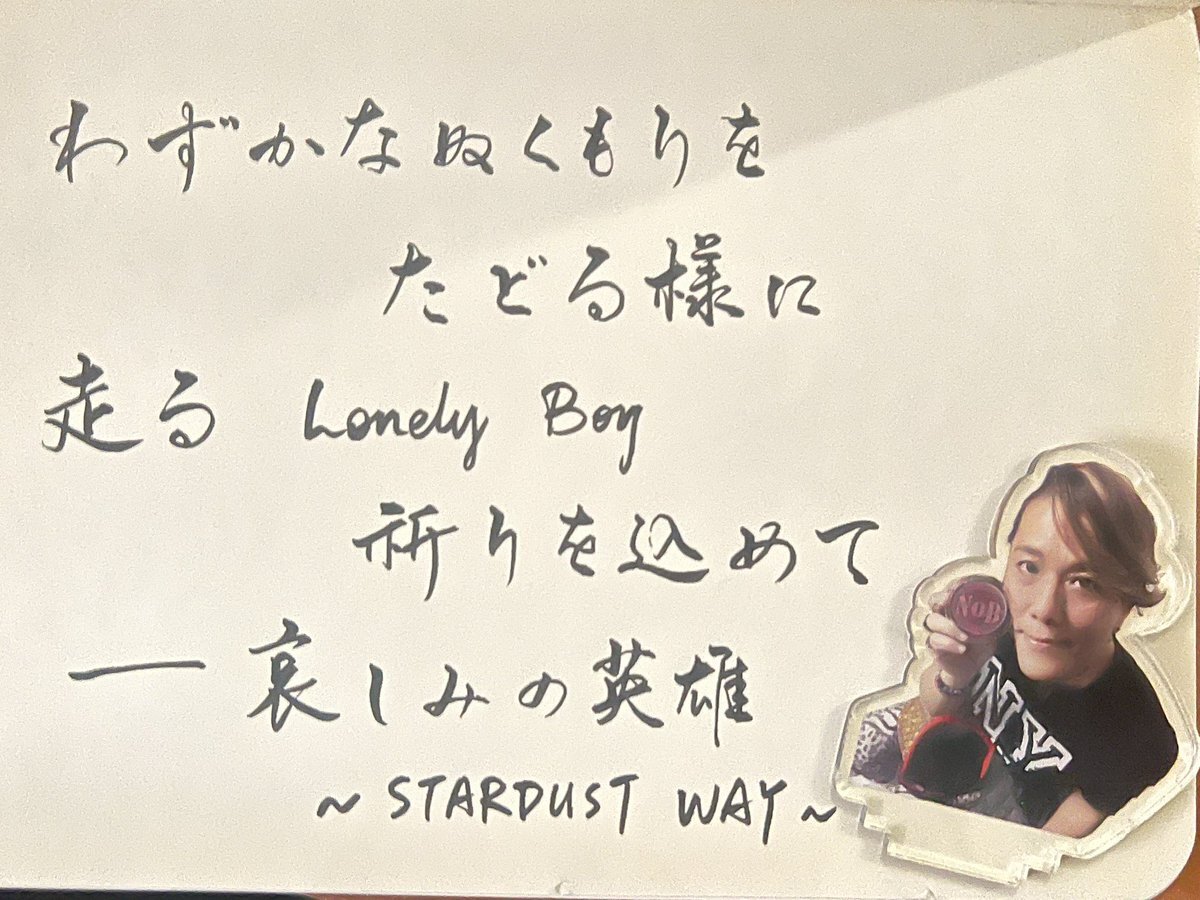 わずかなぬくもりを
たどる様に
走る Lonely Boy
祈りを込めて
― 哀しみの英雄
~ STARDUST WAY ~
NoB
NY